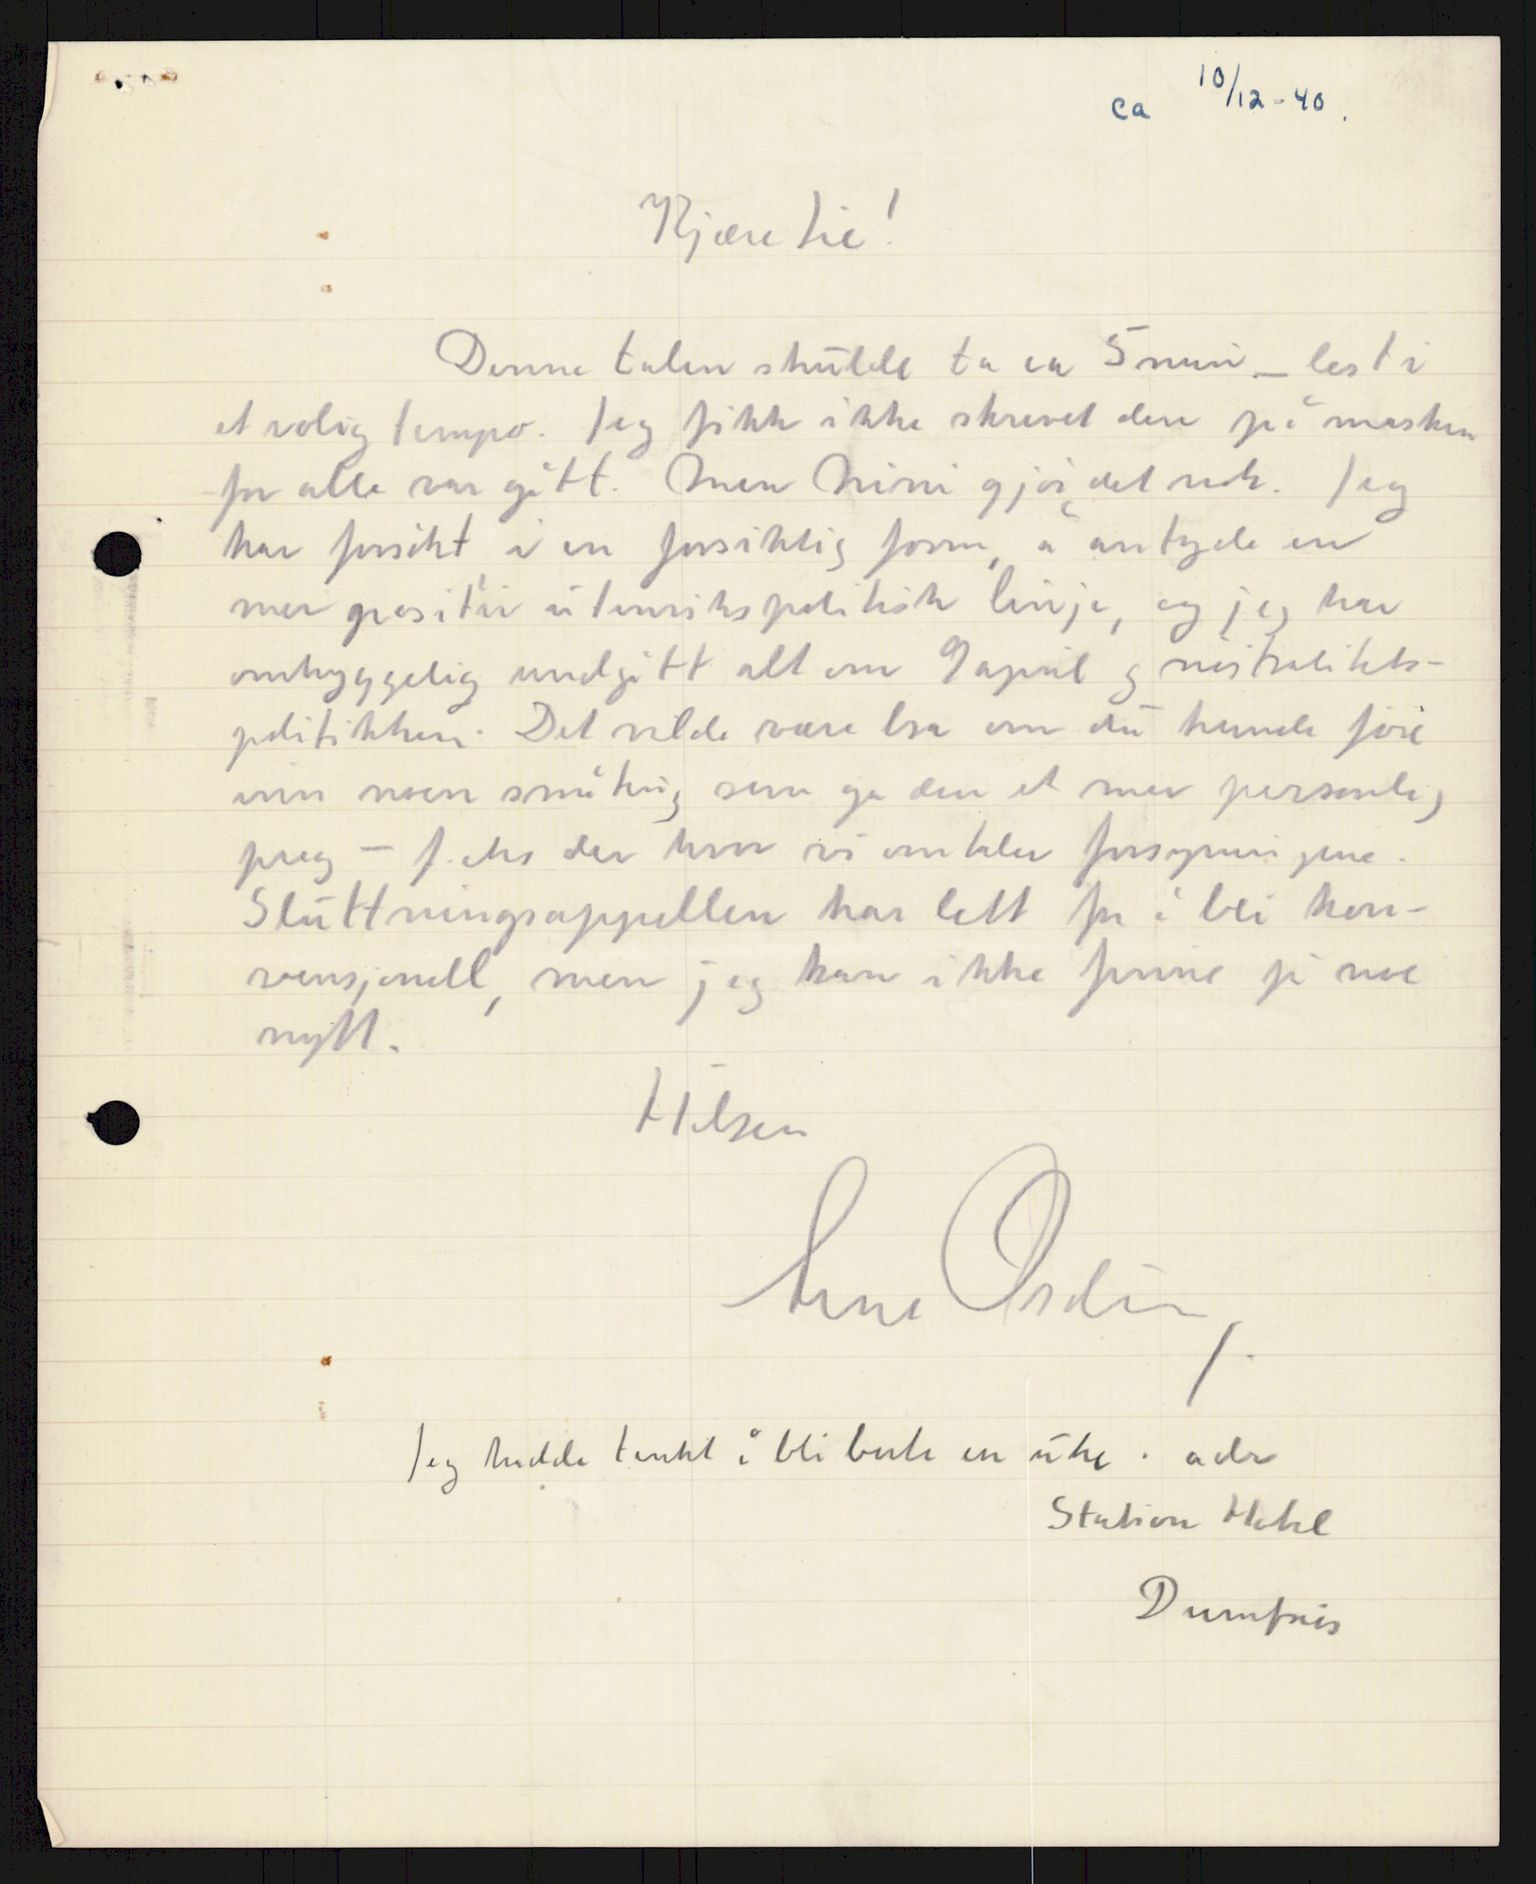 ca 10/12-40.
Kjære Lie!
Denne talen skulde ta ca 5 min – lest i
et rolig tempo. Jeg fikk ikke skrevet den på maskin
for alle var gått. Men Nini gjør det nok. Jeg
har forsøkt, i en forsiktig form, å antyde en
mer positiv utenrikspolitisk linje, og jeg har
omhyggelig undgått alt om 9 april og nøitralitets-
politikken. Det vilde være bra om du kunde føie
inn noen småting som ga den et mer personlig
preg – f. eks der hvor vi omtaler forsyningene.
Slutningsappellen har lett for å bli kon-
vensjonell, men jeg kan ikke finne på noe
nytt.
Hilsen
Arne Ording
Jeg hadde tenkt å bli borte en uke. adr
Station Hotel
Dumfries